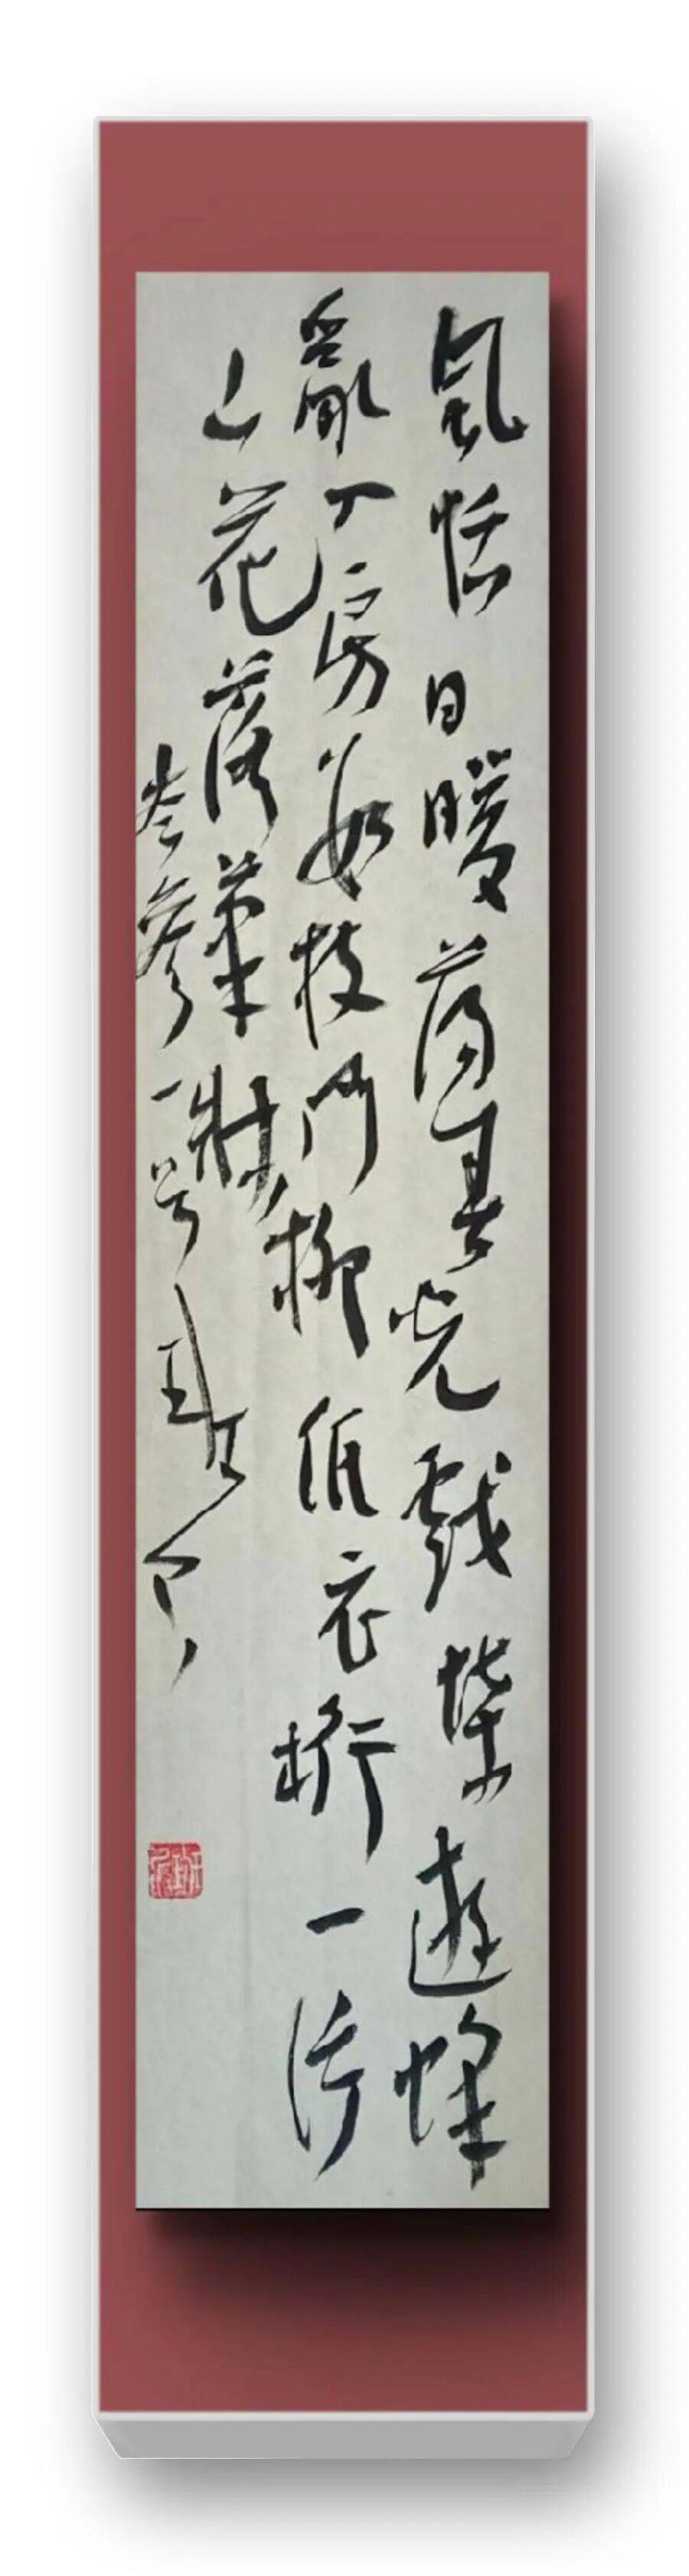 風恬日暖蕩春光戲蝶遊蜂
亂入房數枝門柳低衣桁一片
山花落筆牀
岑參一首